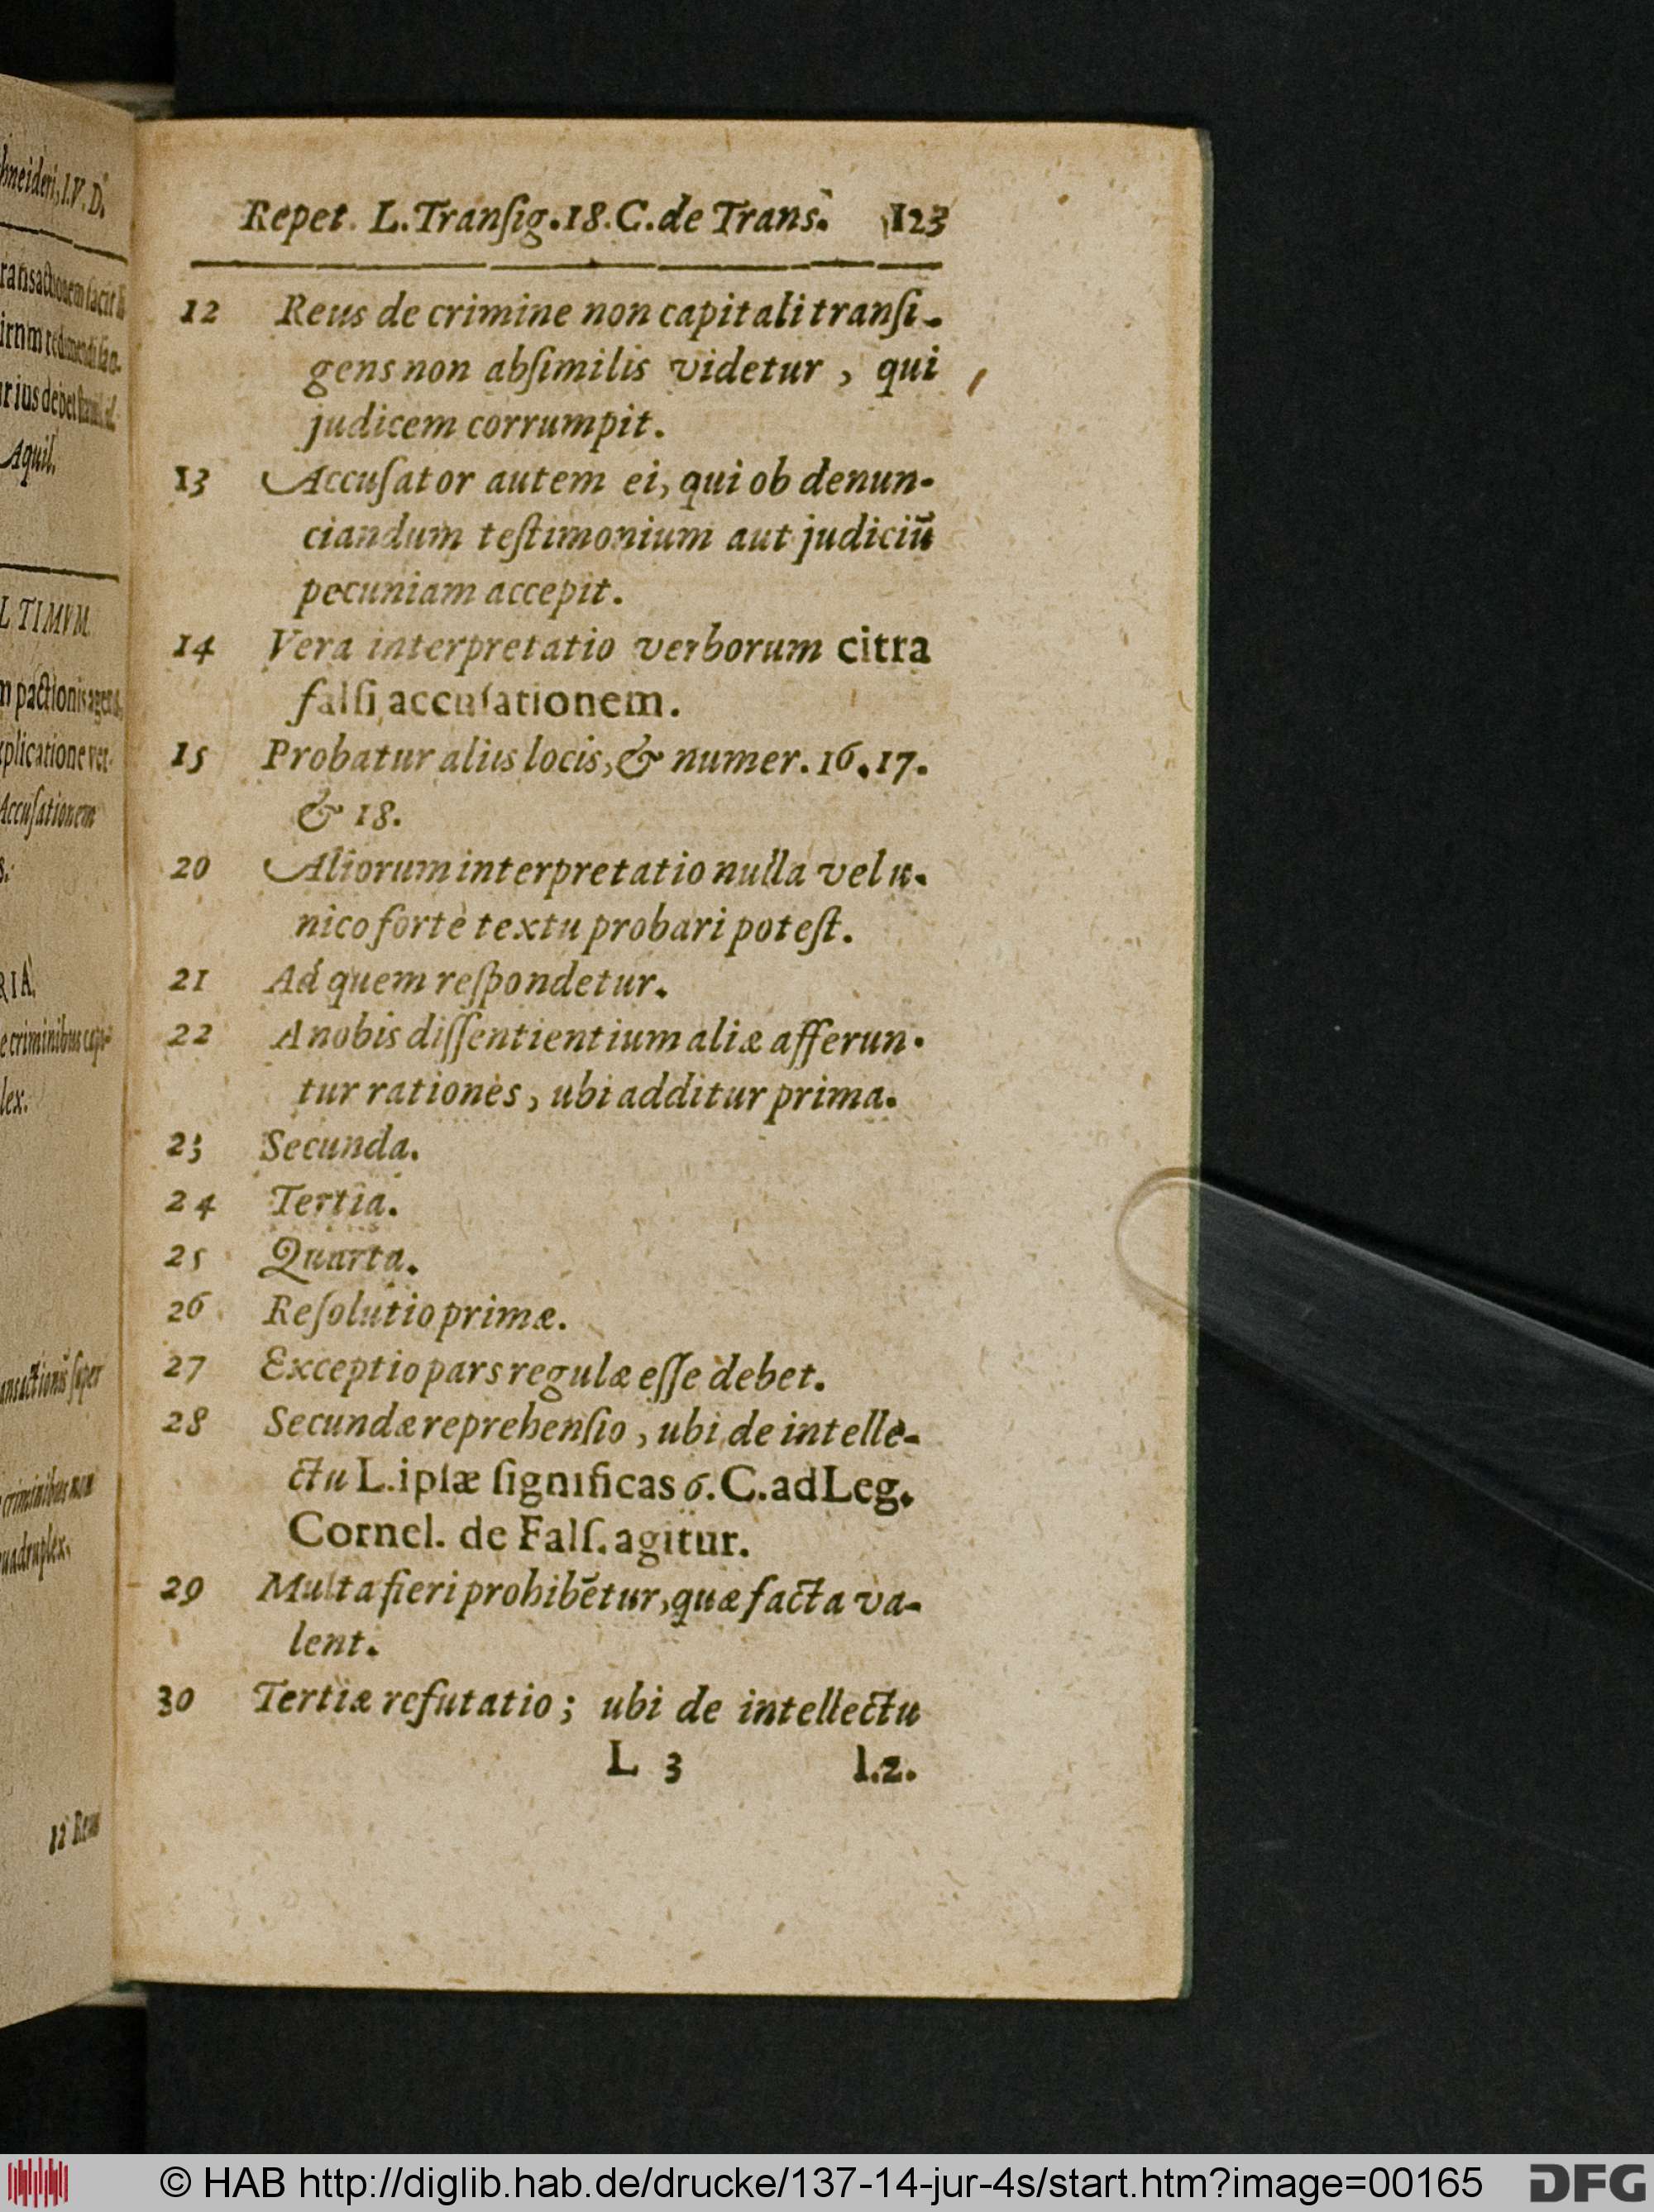 hneideri, I.V.D.
L TIMVM.
Aquil.
RIA.
lex.
12 Reus
Repet. L. Tranſig. 18. C. de Trans. 123
12 Reus de crimine non capitali tranſi-
gens non abſimilis videtur, qui
judicem corrumpit.
13 Accuſator autem ei, qui ob denun-
ciandum teſtimonium aut judiciū
pecuniam accepit.
14 Vera interpretatio verborum citra
falſi accuſationem.
15 Probatur aliis locis, & numer. 16. 17.
& 18.
20 Aliorum interpretatio nulla vel u-
nico fortè textu probari poteſt.
21 Ad quem reſpondetur.
22 A nobis diſſentientium aliæ afferun-
tur rationes, ubi additur prima.
23 Secunda.
24 Tertia.
25 Quarta.
26 Reſolutio primæ.
27 Exceptio pars regulæ eſſe debet.
28 Secundæ reprehenſio, ubi de intelle-
ctu L. ipſæ ſignificas 6. C. ad Leg.
Cornel. de Falſ. agitur.
29 Multa fieri prohibētur, quæ facta va-
lent.
30 Tertiæ refutatio; ubi de intellectu
L 3 l. 2.
© HAB http://diglib.hab.de/drucke/137-14-jur-4s/start.htm?image=00165 DFG